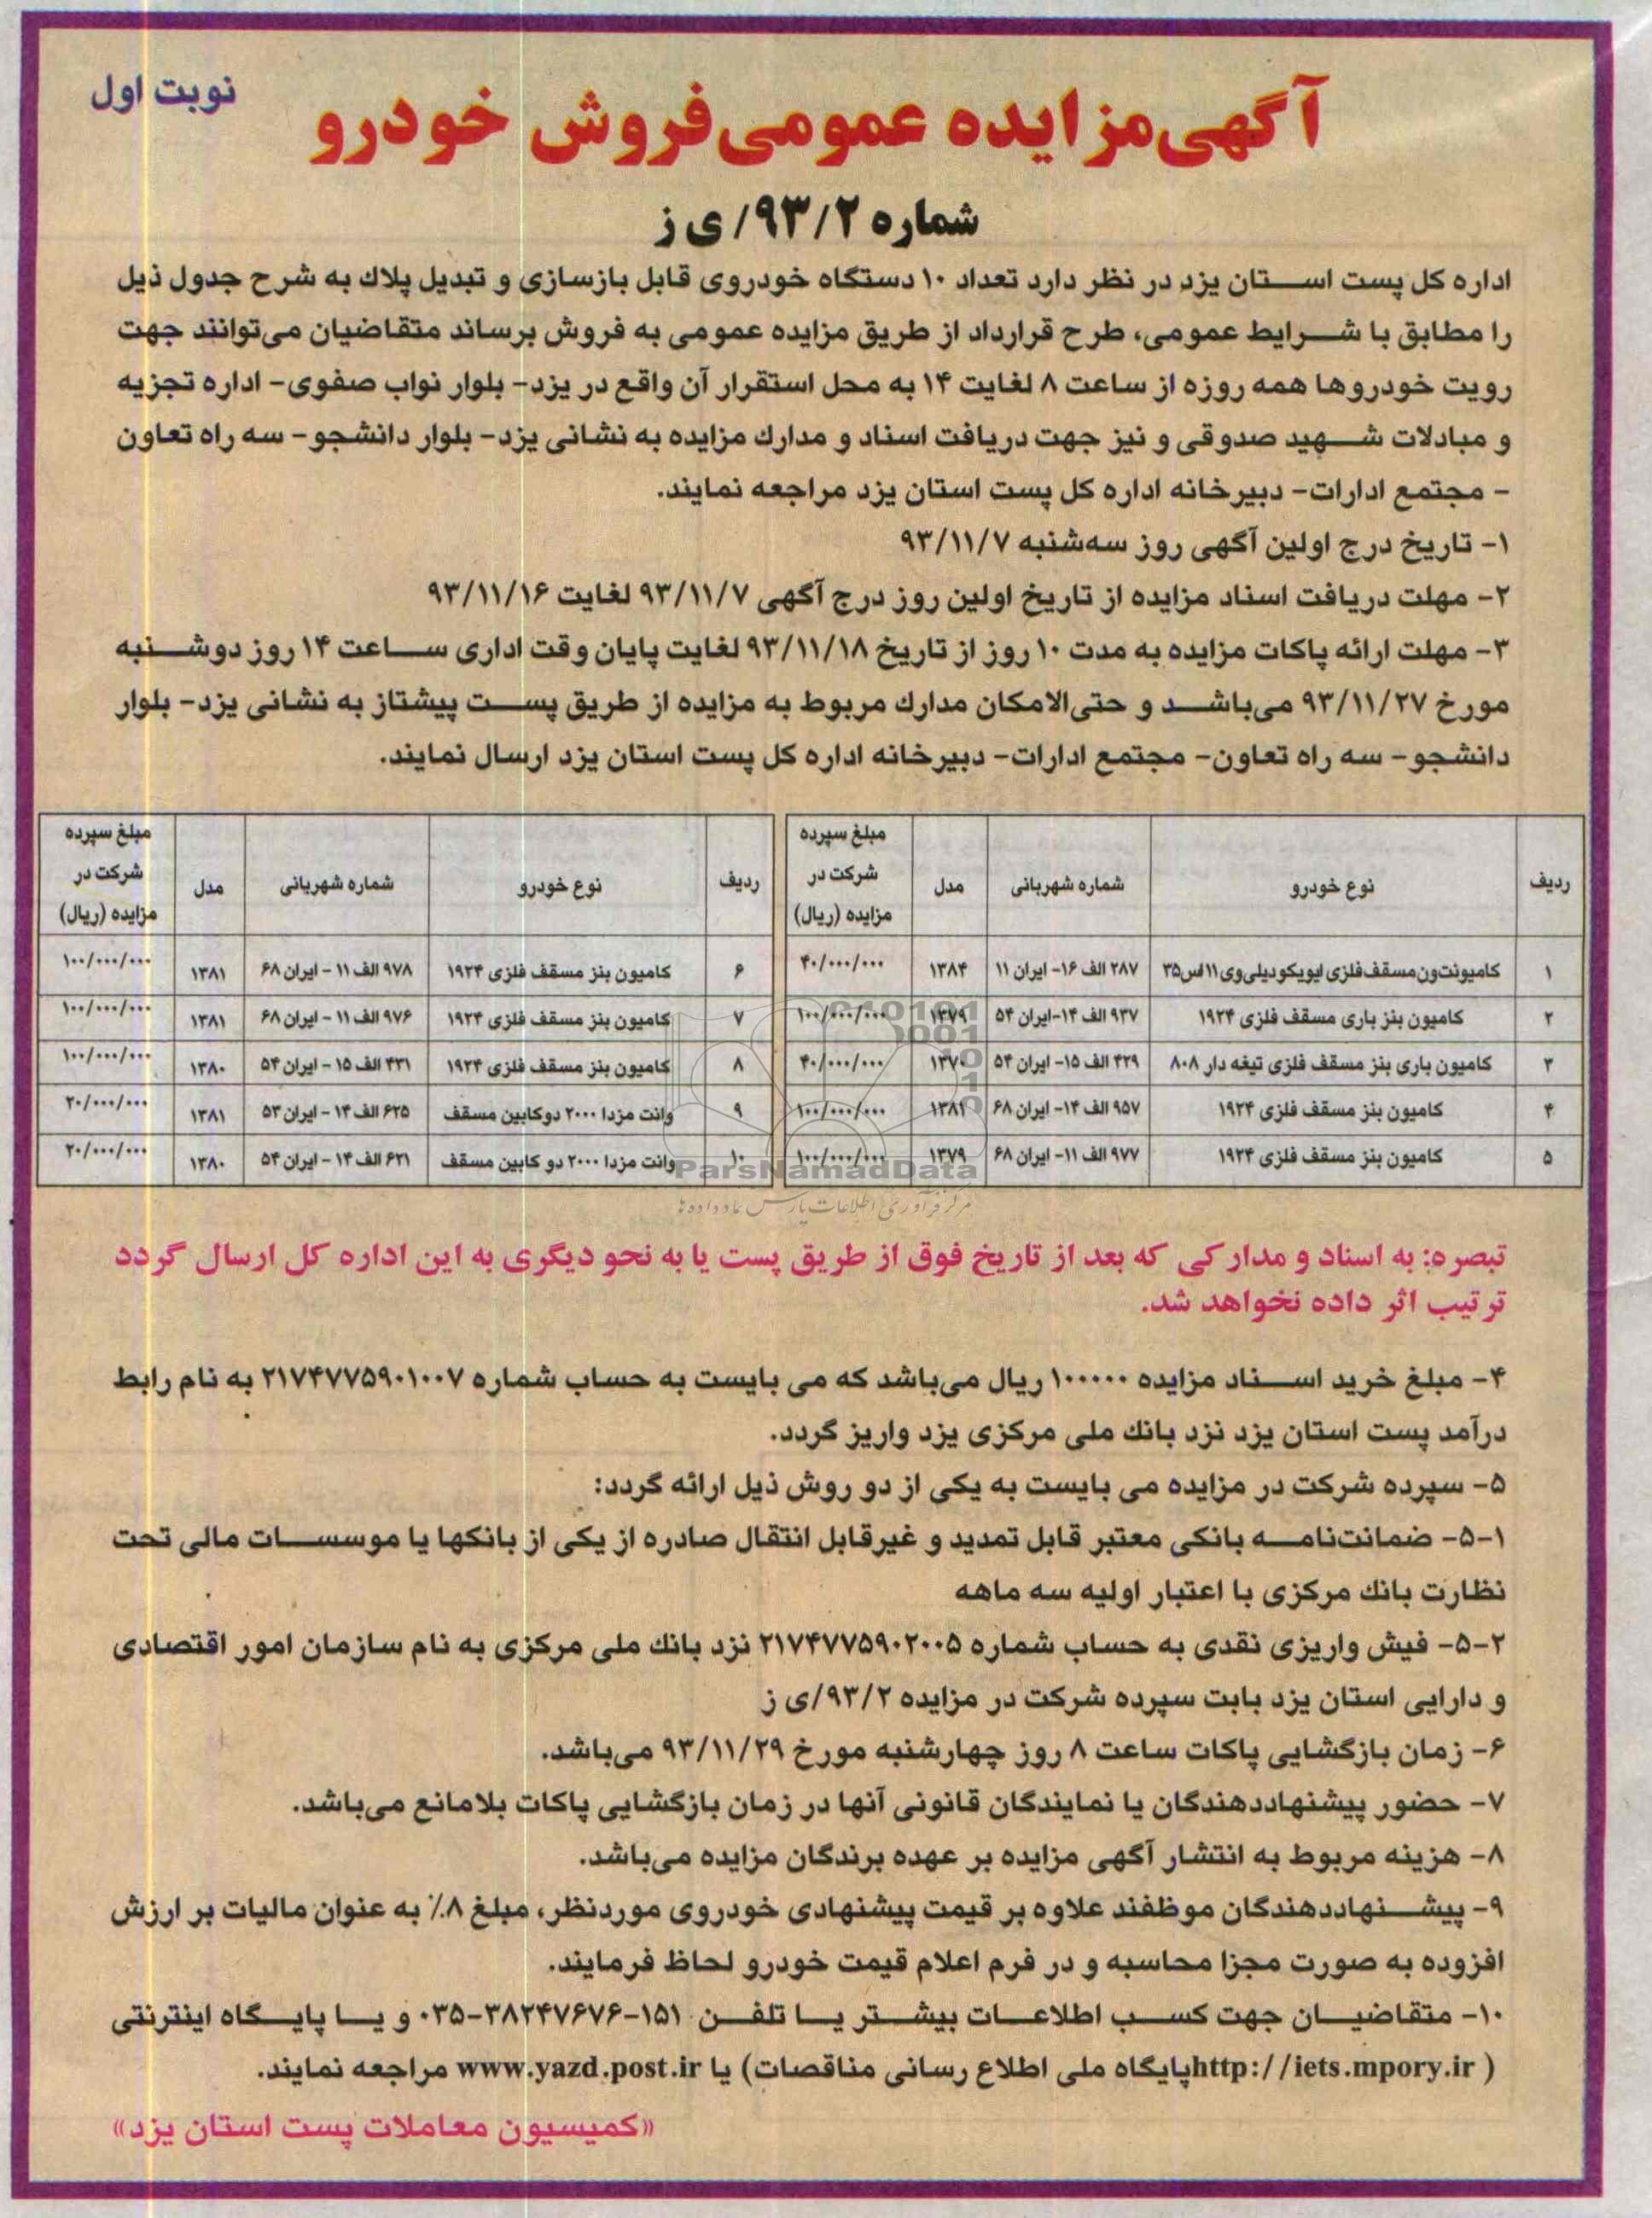 نوبت اول
آگهی مزایده عمومی فروش خودرو
شماره ۹۳/۲/ ی ز
اداره کل پست استان یزد در نظر دارد تعداد ۱۰ دستگاه خودروی قابل بازسازی و تبدیل پلاك به شرح جدول ذیل
را مطابق با شرایط عمومی، طرح قرارداد از طریق مزایده عمومی به فروش برساند متقاضیان می‌توانند جهت
رویت خودروها همه روزه از ساعت ۸ لغایت ۱۴ به محل استقرار آن واقع در یزد- بلوار نواب صفوی- اداره تجزیه
و مبادلات شهید صدوقی و نیز جهت دریافت اسناد و مدارك مزایده به نشانی یزد- بلوار دانشجو- سه راه تعاون
- مجتمع ادارات- دبیرخانه اداره کل پست استان یزد مراجعه نمایند.
۱- تاریخ درج اولین آگهی روز سه‌شنبه ۹۳/۱۱/۷
۲- مهلت دریافت اسناد مزایده از تاریخ اولین روز درج آگهی ۹۳/۱۱/۷ لغایت ۹۳/۱۱/۱۶
۳- مهلت ارائه پاکات مزایده به مدت ۱۰ روز از تاریخ ۹۳/۱۱/۱۸ لغایت پایان وقت اداری ساعت ۱۴ روز دوشنبه
مورخ ۹۳/۱۱/۲۷ می‌باشد و حتی‌الامکان مدارك مربوط به مزایده از طریق پست پیشتاز به نشانی یزد- بلوار
دانشجو- سه راه تعاون- مجتمع ادارات- دبیرخانه اداره کل پست استان یزد ارسال نمایند.
ردیف نوع خودرو شماره شهربانی مدل مبلغ سپرده شرکت در مزایده (ریال)
۱ کامیونت‌ون‌مسقف‌فلزی ایویکودیلی‌وی ۱۱اس۳۵ ۲۸۷ الف ۱۶- ایران ۱۱ ۱۳۸۴ ۴۰/۰۰۰/۰۰۰
۲ کامیون بنز باری مسقف فلزی ۱۹۲۴ ۹۳۷ الف ۱۴-ایران ۵۴ ۱۳۷۹ ۱۰۰/۰۰۰/۰۰۰
۳ کامیون باری بنز مسقف فلزی تیغه دار ۸۰۸ ۴۲۹ الف ۱۵- ایران ۵۴ ۱۳۷۰ ۴۰/۰۰۰/۰۰۰
۴ کامیون بنز مسقف فلزی ۱۹۲۴ ۹۵۷ الف ۱۴- ایران ۶۸ ۱۳۸۱ ۱۰۰/۰۰۰/۰۰۰
۵ کامیون بنز مسقف فلزی ۱۹۲۴ ۹۷۷ الف ۱۱- ایران ۶۸ ۱۳۷۹ ۱۰۰/۰۰۰/۰۰۰
ردیف نوع خودرو شماره شهربانی مدل مبلغ سپرده شرکت در مزایده (ریال)
۶ کامیون بنز مسقف فلزی ۱۹۲۴ ۹۷۸ الف ۱۱ - ایران ۶۸ ۱۳۸۱ ۱۰۰/۰۰۰/۰۰۰
۷ کامیون بنز مسقف فلزی ۱۹۲۴ ۹۷۶ الف ۱۱ - ایران ۶۸ ۱۳۸۱ ۱۰۰/۰۰۰/۰۰۰
۸ کامیون بنز مسقف فلزی ۱۹۲۴ ۴۳۱ الف ۱۵ - ایران ۵۴ ۱۳۸۰ ۱۰۰/۰۰۰/۰۰۰
۹ وانت مزدا ۲۰۰۰ دوکابین مسقف ۶۲۵ الف ۱۴ - ایران ۵۳ ۱۳۸۱ ۲۰/۰۰۰/۰۰۰
۱۰ وانت مزدا ۲۰۰۰ دو کابین مسقف ۶۲۱ الف ۱۴ - ایران ۵۴ ۱۳۸۰ ۲۰/۰۰۰/۰۰۰
ParsNamadData
مرکز فرآوری اطلاعات پارس نماد داده ها
تبصره: به اسناد و مدارکی که بعد از تاریخ فوق از طریق پست یا به نحو دیگری به این اداره کل ارسال گردد
ترتیب اثر داده نخواهد شد.
۴- مبلغ خرید اسناد مزایده ۱۰۰۰۰۰ ریال می‌باشد که می بایست به حساب شماره ۲۱۷۴۷۷۵۹۰۱۰۰۷ به نام رابط
درآمد پست استان یزد نزد بانك ملی مرکزی یزد واریز گردد.
۵- سپرده شرکت در مزایده می بایست به یکی از دو روش ذیل ارائه گردد:
۵-۱- ضمانت‌نامه بانکی معتبر قابل تمدید و غیرقابل انتقال صادره از یکی از بانکها یا موسسات مالی تحت
نظارت بانك مرکزی با اعتبار اولیه سه ماهه
۵-۲- فیش واریزی نقدی به حساب شماره ۲۱۷۴۷۷۵۹۰۲۰۰۵ نزد بانك ملی مرکزی به نام سازمان امور اقتصادی
و دارایی استان یزد بابت سپرده شرکت در مزایده ۹۳/۲/ی ز
۶- زمان بازگشایی پاکات ساعت ۸ روز چهارشنبه مورخ ۹۳/۱۱/۲۹ می‌باشد.
۷- حضور پیشنهاددهندگان یا نمایندگان قانونی آنها در زمان بازگشایی پاکات بلامانع می‌باشد.
۸- هزینه مربوط به انتشار آگهی مزایده بر عهده برندگان مزایده می‌باشد.
۹- پیشنهاددهندگان موظفند علاوه بر قیمت پیشنهادی خودروی موردنظر، مبلغ ۸٪ به عنوان مالیات بر ارزش
افزوده به صورت مجزا محاسبه و در فرم اعلام قیمت خودرو لحاظ فرمایند.
۱۰- متقاضیان جهت کسب اطلاعات بیشتر با تلفن ۱۵۱-۳۸۲۴۷۶۷۶-۰۳۵ و یا پایگاه اینترنتی
( http://iets.mpory.irپایگاه ملی اطلاع رسانی مناقصات) یا www.yazd.post.ir مراجعه نمایند.
«کمیسیون معاملات پست استان یزد»